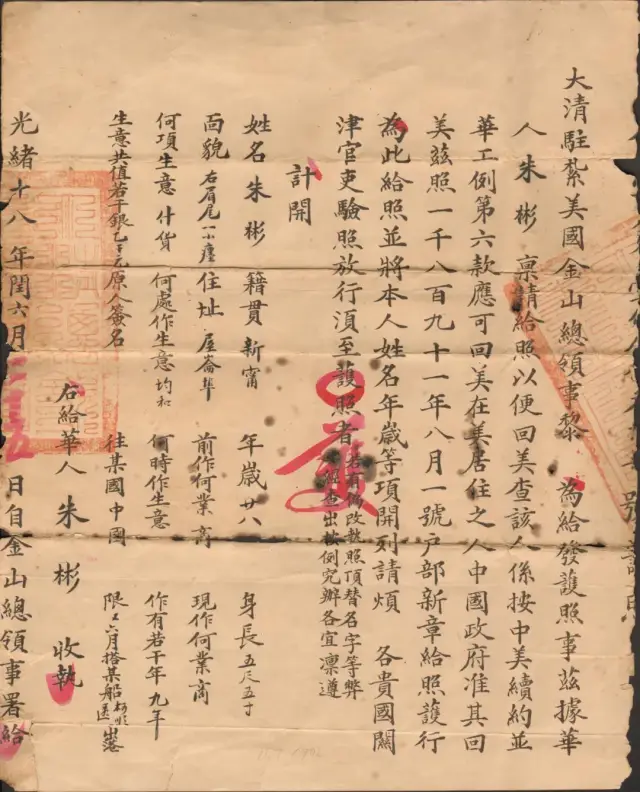 大清駐紮美國金山總領事黎 為給發護照事茲據華
人朱彬稟請給照以便回美查該人係按中美續約並
華工例第六款應可回美在美居住之人中國政府准其回
美茲照一千八百九十一年八月一號户部新章給照護行
為此給照並將本人姓名年歲等項開列請煩 各貴國關
津官吏驗照放行須至護照者
若有偽改數照頂替名字等弊
經查出按例究辦各宜凛遵
計開
姓名朱彬 籍貫新甯 年歲廿八 身長五尺五寸
面貌右眉尾一小痣 住址屋崙埠 前作何業商 現作何業商
何項生意什貨 何處作生意均和 何時作生意 作有若干年九年
生意共值若干銀 元原人簽名 往某國中國 限 六月搭某船
右給華人朱彬 收執
光緒十八年閏六月 日自金山總領事署給